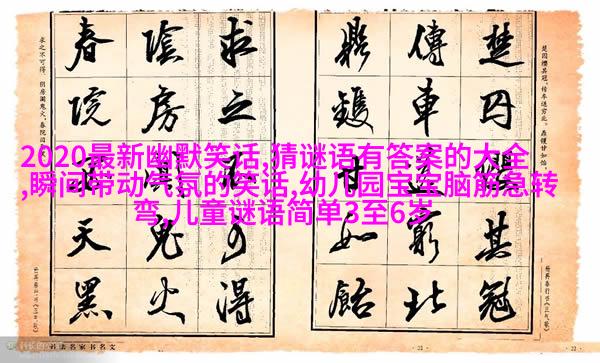 2020最新幽默笑话,猜谜语有答案的大全
,瞬间带动气氛的笑话,幼儿园宝宝脑筋急转
弯,儿童谜语简单3至6岁
楚囚纓其冠
傳車送窮北
鼎鑊甘如飴
求之不可得
陰房鬼火
春院天黑